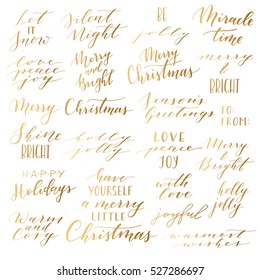 Let
it
Snow
Silent
Night
BE
jolly
Miracle
time
love
peace
joy
Merry
and
Bright
Merry
Christmas
merry
&
BRIGHT
Merry Christmas
Season's
Greetings
TO:
FROM:
Shine
BRIGHT
holly
jolly
LOVE
peace
JOY
Merry
&
Bright
HAPPY
Holidays
have
YOURSELF
a merry
LITTLE
Christmas
with
love
holly
jolly
joyful
Warm
and
Cozy
warmest
wishes
shutterstock.com · 527286697